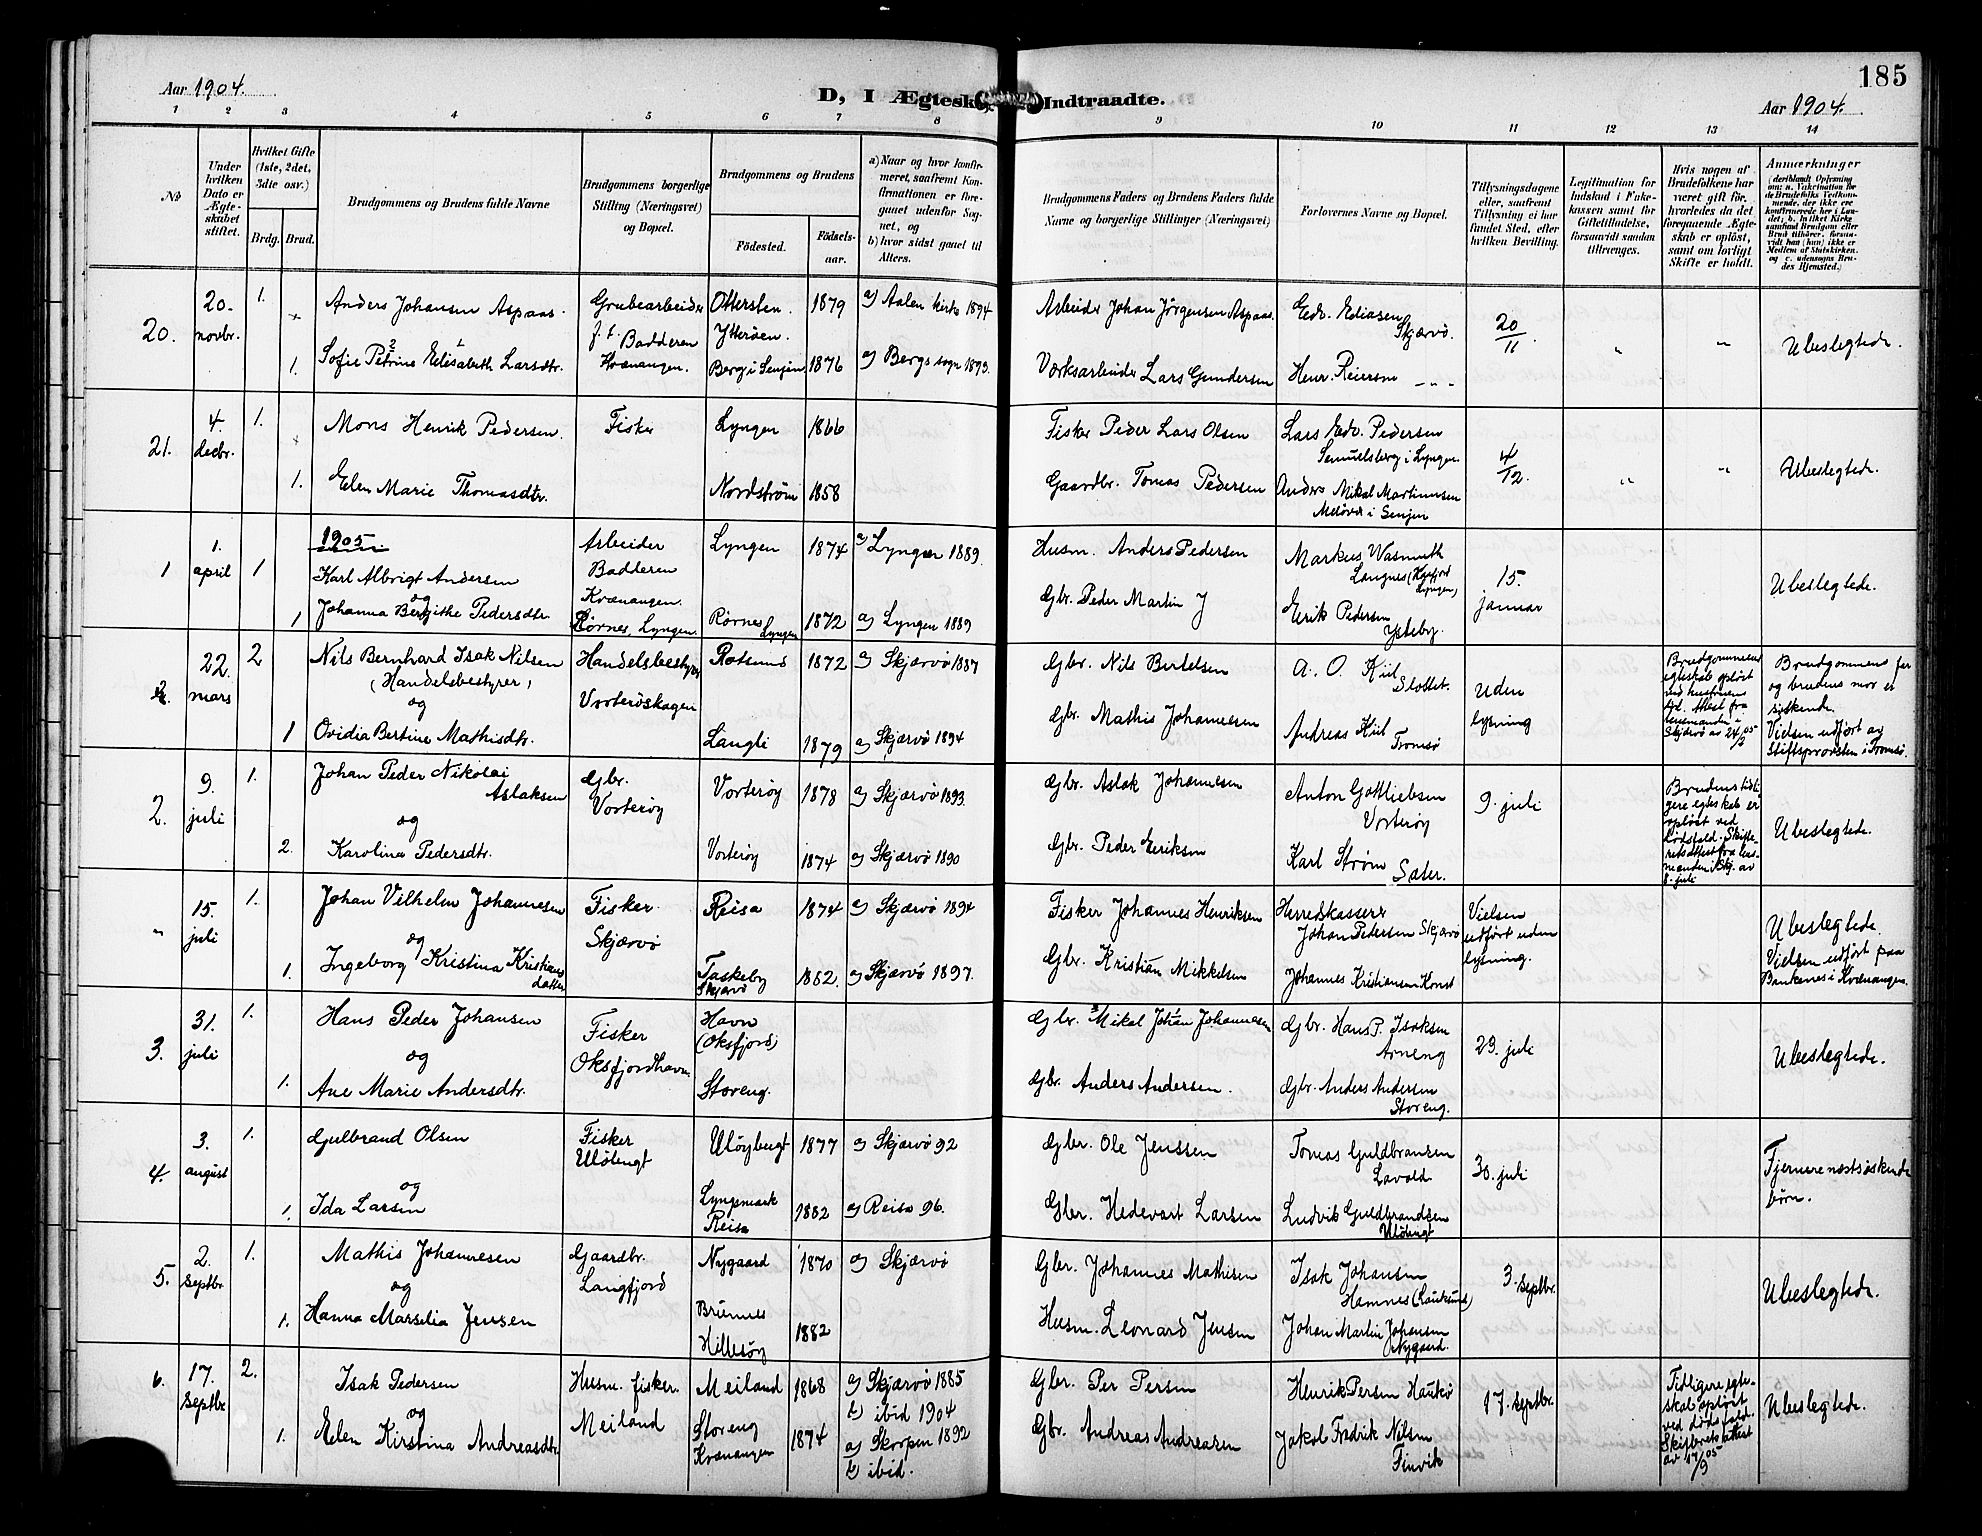 Aar 1904.
D, I Ægtesk
Indtraadte.
185
Aar 1904.
1 2 3 4 5 6 7 8 9 10 11 12 13 14
No
Under hvilken Dato er Ægteskabet stiftet.
Hvilket Gifte (1ste, 2det, 3dte osv.)
Brdg. Brud.
Brudgommens og Brudens fulde Navne
Brudgommens borgerlige Stilling (Næringsvei) og Bopæl.
Brudgommens og Brudens
Fødested.
Fødselsaar.
a) Naar og hvor konfirmeret, saafremt Konfirmationen er foregaaet udenfor Sognet, og
b) hvor sidst gaaet til Alters.
Brudgommens Faders og Brudens Faders fulde Navne og borgerlige Stillinger (Næringsvei)
Forlovernes Navne og Bopæl.
Tillysningsdagene eller, saafremt Tillysning ei har fundet Sted, efter hvilken Bevilling.
Legitimation for Indskud i Enkekassen samt for Giftetilladelse, forsaavidt saadan tiltrænges.
Hvis nogen af Brudefolkene har været gift før, hvorledes da det foregaaende Ægteskab er opløst, samt om lovligt Skifte er holdt.
Anmærkninger
20. 20. novbr. 1. Anders Johansen Aspaas. Grubearbeider f.t. Badderen Kvænangen. Ottersten. Ytterøen. 1879 a) Aalen kirke 1894
Arbeider Johan Jørgensen Aspaas. Edv. Eliasen Skjærvø. 20/11 " " Ubeslegtede.
1. Sofie Petrine Elisabeth Larsdtr. Berg i Senjen 1876 a) Bergs sogn 1893.
Værksarbeider Lars Gundersen Henr. Reiersen - " -
21. 4. decbr. 1. Mons Henrik Pedersen. Fisker Lyngen 1866
Fisker Peder Lars Olsen Lars Edv. Pedersen Semuelsberg i Lyngen. 4/12. " " Ubeslegtede.
1. Elen Marie Thomasdtr. Nordstrøm 1858
Gaardbr. Tomas Pedersen Anders Mikal Martinusen i Senjen
1905
1 1. april 1 Karl Albrigt Andersen Arbeider Badderen Kvænangen. Lyngen 1874 a) Lyngen 1889.
Husm. Anders Pedersen Markus Wasmuth Langnes 15. januar Ubeslegtede.
og
1 Johanna Bergithe Pedersdtr. Rørnes, Lyngen. Rørnes Lyngen 1872 a) Lyngen 1889
Gbr. Peder Martin J Erik Pedersen Ysteby.
2. 22. mars 2 Nils Bernhard Isak Nilsen (Handelsbestyrer) Handelsbestyrer Vorterøskagen Rotsund 1872 a) Skjærvø 1887
Gbr. Nils Bertelsen A. O. Kiil Slottet. Uden lysning
Brudgommens egteskab opløst ved hustruens død. Attest fra lensmanden i Skjærvø av 24/2 05
Brudgommens far og brudens mor er syskende. Vielsen udført av Stiftsprovsten i Tromsø.
og
1 Ovidia Bertine Mathisdtr. Langli 1879 a) Skjærvø 1894
Gbr. Mathis Johannesen Andreas Kiil Tromsø
2. 9. juli 1. Johan Peder Nikolai Aslaksen Gbr. Vorterøy Vorterøy 1878 a) Skjærvø 1893.
Gbr. Aslak Johannesen Anton Gottliebsen Vorterøy 9. juli
Brudens tidligere egteskab er opløst ved dødsfald. Skifteretsattest fra lensmanden i Skj. av 8. juli
Ubeslegtede.
og
2. Karolina Pedersdtr. Vorterøy 1874 a) Skjærvø 1890
Gbr. Peder Eriksen Karl Strøm Sæter.
" 15. juli 1. Johan Vilhelm Johannesen Fisker. Skjærvø Reisa 1874 a) Skjærvø 1894
Fisker Johannes Henriksen Herredskasserer Johan Pedersen Skjærvø Vielsen udført uden lysning.
Ubeslegtede. Vielsen udført paa Bankenes i Kvænangen.
og
1. Ingeborg Kristina Kristiansdatter Taskeby Skjærvø 1882. a) Skjærvø 1897.
Gbr. Kristian Mikkelsen Johannes Kristiansen Konst
3. 31. juli 1. Hans Peder Johansen Fisker Oksfjordhavn. Havn (Oksfjord)
Gbr. Mikal Johan Johannesen Gbr. Hans P. Isaksen Arneng 29. juli Ubeslegtede.
og
1. Ane Marie Andersdtr. Storeng.
Gbr. Anders Andersen. Gbr. Anders Andersen Storeng.
4. 3. august 1. Gulbrand Olsen Fisker Uløbugt Uløybugt 1877 a) Skjærvø 92
Gbr. Ole Jenssen Tomas Guldbransen Lavold 30. juli Fjernere næstsøskendebørn.
og
1. Ida Larsen Lyngsmark Reisa 1882 a) Reisa 96.
Gbr. Hedevart Larsen Ludvik Guldbrandsen Uløbugt
5. 2. septbr. 1. Mathis Johannesen Gaardbr. Langfjord Nygaard 1870 a) Skjærvø
Gbr. Johannes Mathisen Isak Johansen Hamnes 3. septbr. Ubeslegtede.
og
1. Hanna Marselia Jensen Hillesøy 1882
Husm. Leonard Jensen Johan Martin Johansen Nygaard.
6. 17. septbr. 2. Isak Pedersen Husm. fisker. Meiland Meiland 1868 a) Skjærvø 1885 b) ibid 1904
Gbr. Per Persen Henrik Persen Haukø 17. septbr.
Tidligere egteskab opløst ved dødsfald. Skifteretsattest av 17/9 05
Ubeslegtede.
og
1. Elen Kirstina Andreasdtr. Storeng Kvænangen 1874 a) Skorpen 1892 b) ibid.
Gbr. Andreas Andreasen Jakob Fredrik Nilsen Finvik